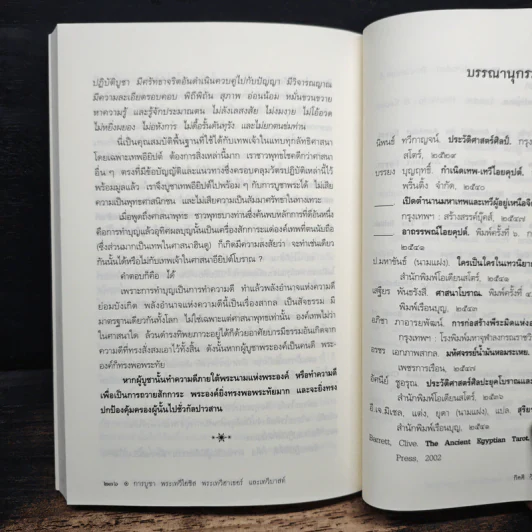 ปฏิบัติบูชา มีศรัทธาจริตอันดำเนินควบคู่ไปกับปัญญา มีวิจารณญาณ
มีความละเอียดรอบคอบ พิถีพิถัน สุภาพ อ่อนน้อม หมั่นขวนขวาย
หาความรู้ และรู้จักประมาณตน ไม่ลังเลสงสัย ไม่งมงาย ไม่โอ้อวด
ไม่หยิ่งผยอง ไม่อหังการ ไม่ดื้อรั้นดันทุรัง และไม่ยกตนข่มท่าน
นี่เป็นคุณสมบัติพื้นฐานที่ใช้ได้กับเทพเจ้าแทบทุกลัทธิศาสนา
โดยเฉพาะเทพไอยคุปต์ ต้องการสิ่งเหล่านี้มาก เราชาวพุทธโชคดีกว่าศาสนา
อื่น ๆ ตรงที่มีข้อบัญญัติและแนวทางซึ่งครอบคลุมวัตรปฏิบัติเหล่านี้ไว้
พร้อมมูลแล้ว เราจึงบูชาเทพไอยคุปต์ไปพร้อม ๆ กับการบูชาพระได้ ไม่เสีย
ความเป็นพุทธศาสนิกชน และไม่เสียความเป็นสัมมาศรัทธาในทางเทวะ
เมื่อพูดถึงศาสนาพุทธ ชาวพุทธบางท่านซึ่งค้นพบหลักการที่ดีอันหนึ่ง
คือการทำบุญแล้วอุทิศผลบุญนั้นเป็นเครื่องสักการะแด่องค์เทพที่ตนนับถือ
(ซึ่งส่วนมากเป็นเทพในศาสนาฮินดู) ก็เกิดมีความสงสัยว่า จะทำเช่นเดียว
กันนั้นได้หรือไม่กับเทพเจ้าในศาสนาอียิปต์โบราณ ?
คำตอบก็คือ ได้
เพราะการทำบุญเป็นการทำความดี ทำแล้วพลังอำนาจแห่งความดี
ย่อมบังเกิด พลังอำนาจแห่งความดีนี้เป็นเรื่องสากล เป็นสัจธรรม มี
มาตรฐานเดียวกันทั้งโลก ไม่ใช่เฉพาะแต่ศาสนาพุทธเท่านั้น องค์เทพไม่ว่า
ในศาสนาใด ล้วนดำรงทิพยภาวะอยู่ได้ก็ด้วยอาศัยบารมีธรรมอันเกิดจาก
ความดีที่ทรงสั่งสมเอาไว้ทั้งสิ้น ดังนั้นหากผู้บูชาพระองค์เป็นคนดี พระ-
องค์ก็ทรงพอพระทัย
หากผู้บูชานั้นทำความดีภายใต้พระนามแห่งพระองค์ หรือทำความดี
เพื่อเป็นการถวายสักการะ พระองค์ยิ่งทรงพอพระทัยมาก และจะยิ่งทรง
ปกป้องคุ้มครองผู้นั้นไปชั่วกัลปาวสาน
๒๓๖ ๏ การบูชา พระเทวีไอซิส พระเทวีฮาเธอร์ และเทวีบาสต์
บรรณานุกร
นิพนธ์ ทวีกาญจน์. ประวัติศาสตร์ศิลป์. กรุง
สโตร์, ๒๕๒๙
บรรยง บุญฤทธิ์. กำเนิดเทพ-เทวีไอยคุปต์.
พริ้นติ้ง จำกัด, ๒๕๔๐
เปิดตำนานมหาเทพและเทวีผู้อยู่เหนือจัก
กรุงเทพฯ : สร้างสรรค์บุ๊คส์, ๒๕๔๗
อาถรรพณ์ไอยคุปต์. พิมพ์ครั้งที่ ๖.
๒๕๔๑
ป.มหาขันธ์ (นามแฝง). ใครเป็นใครในเทวนิยาย
สำนักพิมพ์โอเดียนสโตร์, ๒๕๔๑
เสฐียร พันธรังสี. ศาสนาโบราณ. พิมพ์ครั้งที่
พิมพ์เรือนบุญ, ๒๕๔๑
อภิชา ภาอารยพัฒน์. การก่อสร้างพีระมิดแห่งอ
กรุงเทพฯ : โรงพิมพ์มหาจุฬาลงกรณราชวิ
อรชร เอกภาพสากล. มหัศจรรย์น้ำมันหอมระเหย.
เพชรการเรือน, ๒๕๔๗
อัศนีย์ ชูอรุณ. ประวัติศาสตร์ศิลปะยุคโบราณและ
สำนักพิมพ์โอเดียนสโตร์, ๒๕๓๖
อี.เจ.มิเชล, แต่ง, ยุตา (นามแฝง). แปล. สุริย
สำนักพิมพ์เรือนบุญ, ๒๕๔๑
Barrett, Clive. The Ancient Egyptian Tarot.
Press, 2002
กิตติ วั